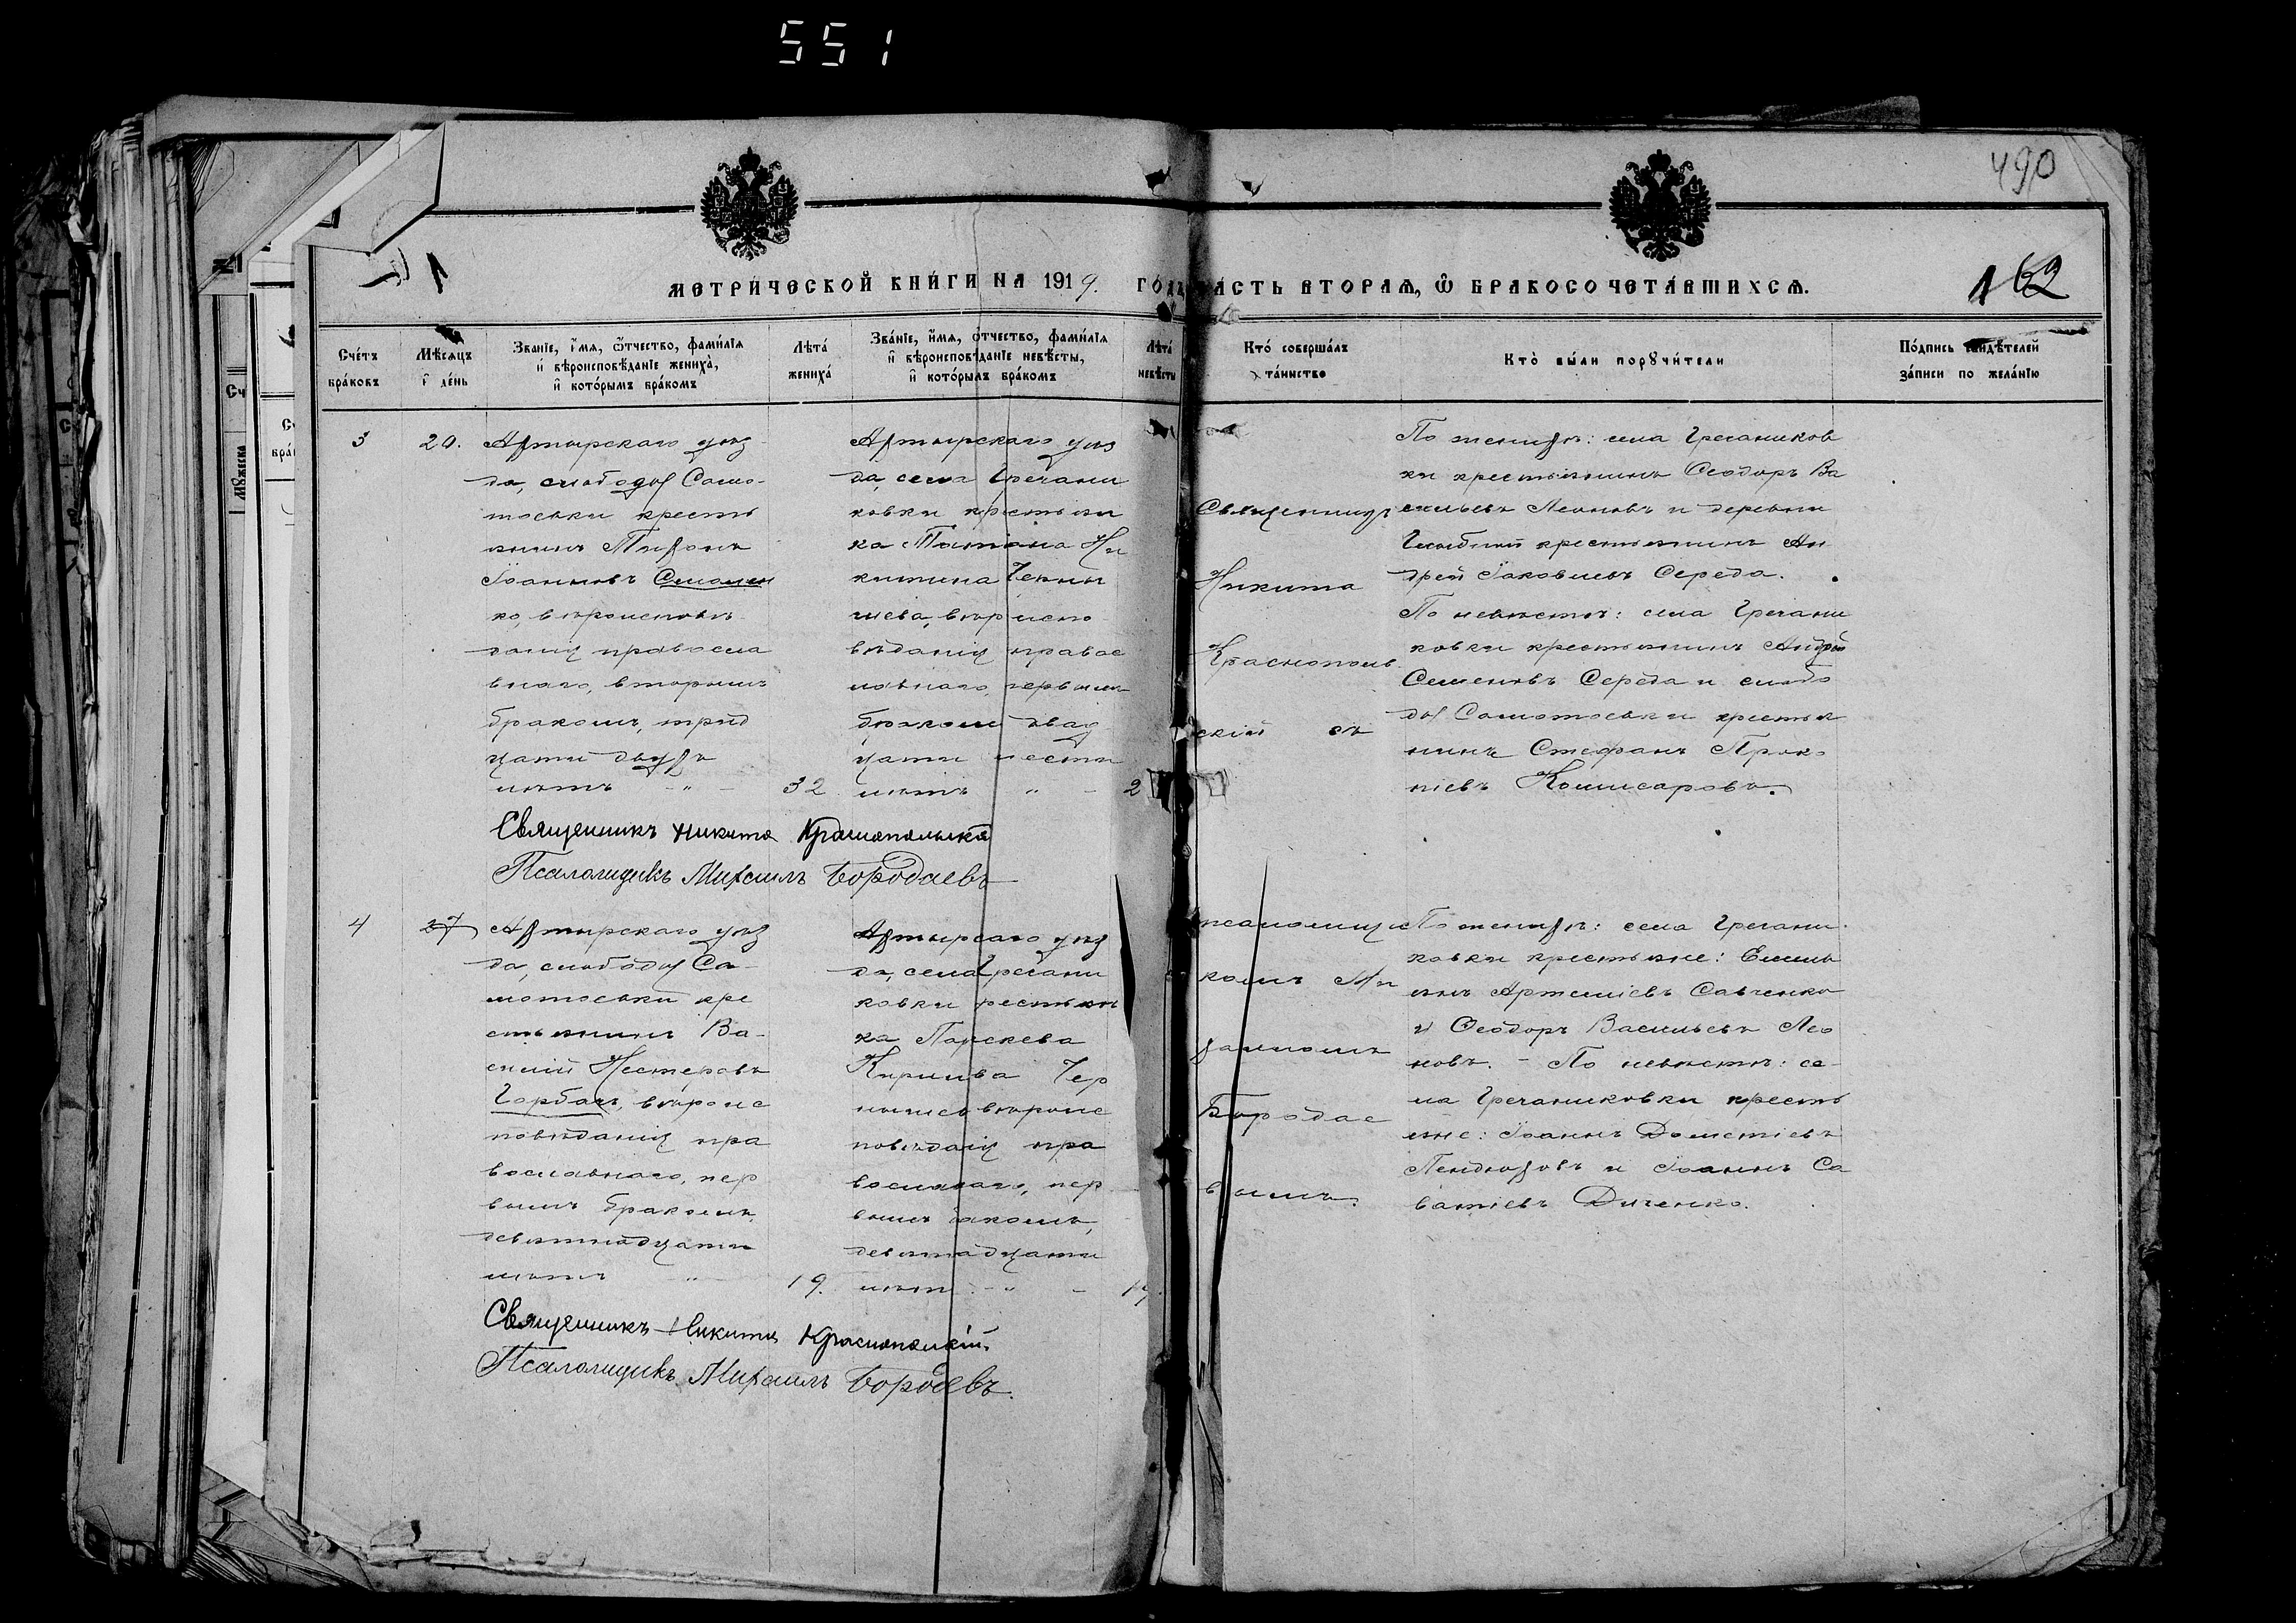 551
490
162
МЕТРИЧЕСКОЙ КНИГИ НА 1919. ГОДЪ
ЧАСТЬ ВТОРАЯ, Ѡ БРАКОСОЧЕТАВШИХСЯ.
Счетъ браковъ
Мѣсяцъ и день
Званіе, имя, отчество, фамилія
и вѣроисповѣданіе жениха,
и которымъ бракомъ
Лѣта жениха
Званіе, имя, отчество, фамилія
и вѣроисповѣданіе невѣсты,
и которымъ бракомъ
Лѣта невѣсты
Кто совершалъ
таинство
Кто были поручители
Подпись свидѣтелей
записи по желанію
3
20.
Ахтырскаго уѣз
да, слободы Само-
тоевки кресть
янинъ Тихонъ
Іоанновъ
ко, вѣроисповѣ
данія правосла
внаго, вторымъ
бракомъ, трид
цати двухъ
лѣтъ 32
Ахтырскаго уѣз
да, села Гречани
ковки крестьян
ка Татіана Ни
китина Черны
шева, вѣроиспо
вѣданія правос
лавнаго, первымъ
бракомъ двад
цати шести
лѣтъ 2
Священникъ
Никита
Краснополь
скій съ
По женихѣ: села Гречаников
ки крестьянинъ Ѳеодоръ Ва
сильевъ Леоновъ и деревни
крестьянинъ Ан
дрей Іаковлевъ Середа.
По невѣстѣ: села Гречани
ковки крестьянинъ Андрей
Семеновъ Середа и слобо
ды Самотоевки крестья
нинъ Стефанъ Проко
піевъ Комисаровъ.
Священникъ Никита Краснопольскій
Псаломщикъ Михаилъ Бородаевъ
4
27
Ахтырскаго уѣз
да, слободы Са-
мотоевки кре
стьянинъ Ва-
силій Нестеровъ
Горбачъ, вѣроис
повѣданія пра
вославнаго, пер
вымъ бракомъ,
девятнадцати
лѣтъ 19.
Ахтырскаго уѣз
да, села Гречани
ковки крестьян
ка Парскева
Кирилова Чер
нышева вѣроис
повѣданія пра
вославнаго, пер
вымъ бракомъ,
девятнадцати
лѣтъ 19.
псаломщи
комъ Ми
хаиломъ
Бородае
вымъ.
По женихѣ: села Гречани-
ковки крестьяне: Емель
янъ Артеміевъ Савченко
и Ѳеодоръ Васильевъ Лео
новъ. - По невѣстѣ: се-
ла Гречаниковки кресть
яне: Іоаннъ Дометіевъ
и Іоаннъ Са
ватіевъ Дученко.
Священникъ Никита Краснопольскій.
Псаломщикъ Михаилъ Бородаевъ.